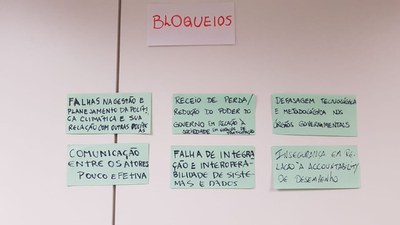 BLOQUEIOS
FALHAS NA GESTÃO E
PLANEJAMENTO DA POLÍTI
CA CLIMÁTICA E SUA
RELAÇÃO COM OUTRAS POLÍTIC
AS
RECEIO DE PERDA/
REDUÇÃO DO PODER DO
GOVERNO EM RELAÇÃO À
SOCIEDADE EM
DEFASAGEM TECNOLÓGICA
E METODOLÓGICA NOS
ÓRGÃOS GOVERNAMENTAIS
COMUNICAÇÃO
ENTRE OS ATORES
POUCO EFETIVA
FALHA DE INTEGRA
ÇÃO E INTEROPERA-
BILIDADE DE SISTE-
MAS E DADOS
INSEGURANÇA EM RE-
LAÇÃO À ACCOUNTABILITY
DE DESEMPENHO